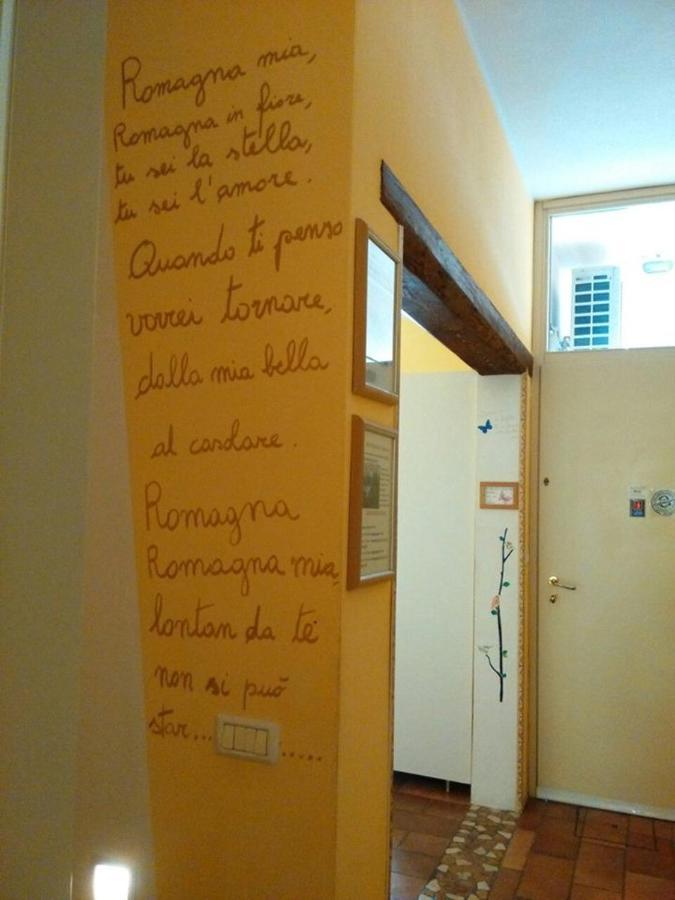 Romagna mia,
Romagna in fiore,
tu sei la stella,
tu sei l'amore.
Quando ti penso
vorrei tornare,
dalla mia bella
al casolare.
Romagna
Romagna mia,
lontan da te
non si può
star........